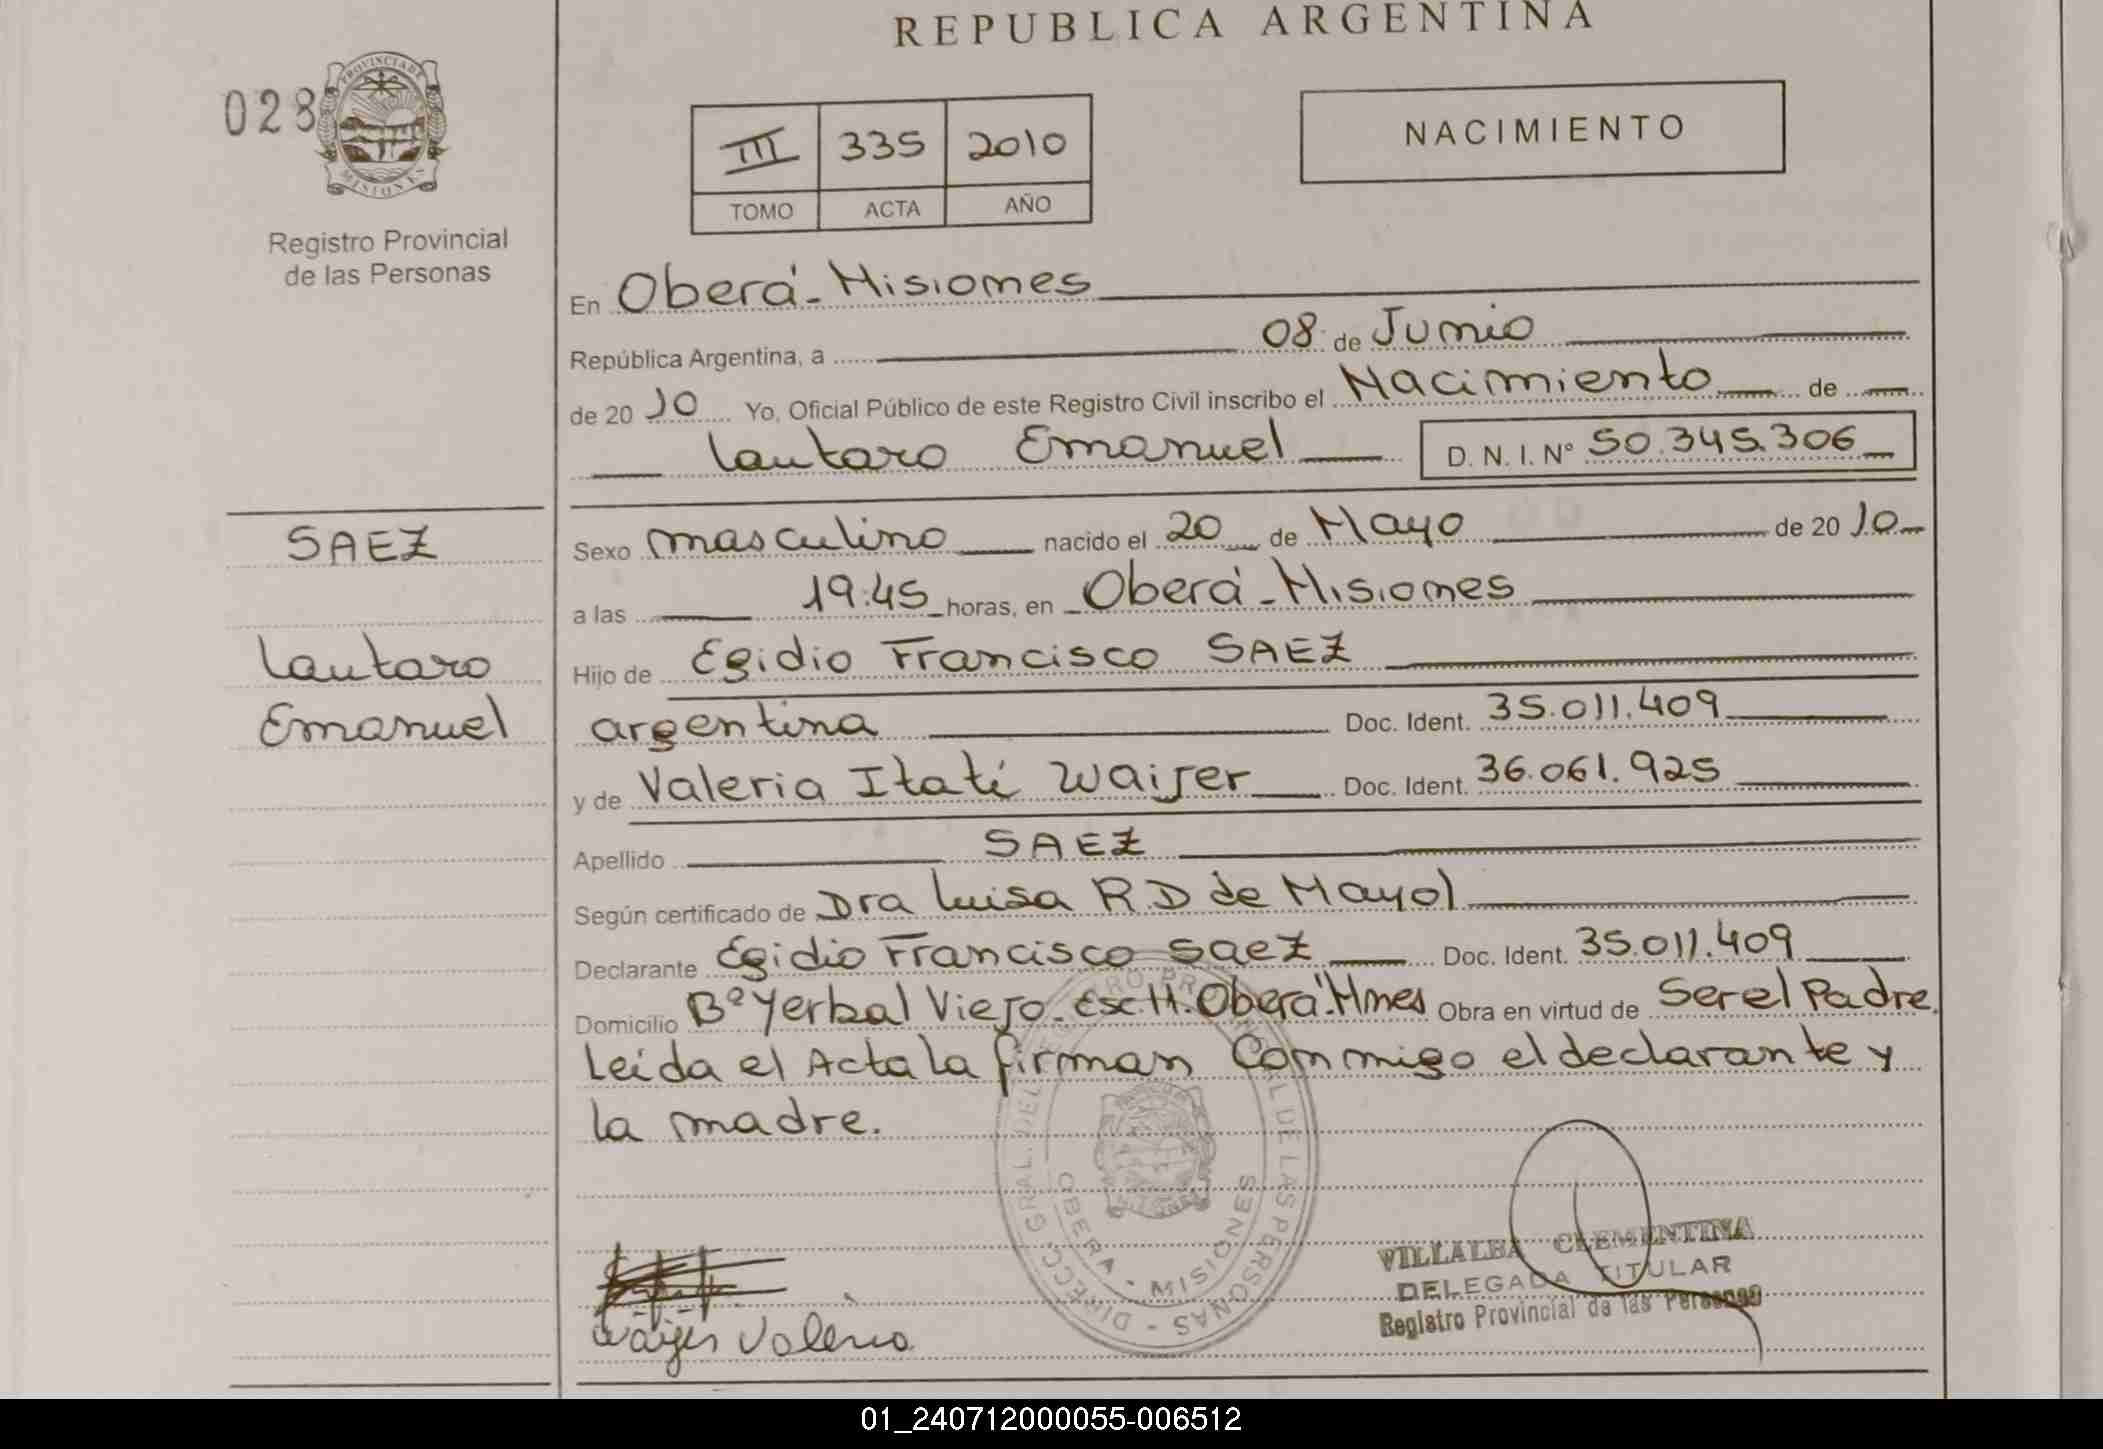 REPUBLICA ARGENTINA
028
PROVINCIA DE MISIONES
Registro Provincial
de las Personas
III 335 2010
TOMO ACTA AÑO
NACIMIENTO
En Oberá - Misiones
República Argentina, a 08 de Junio
de 20 10 Yo, Oficial Público de este Registro Civil inscribo el Nacimiento de
Lautaro Emanuel D. N. I. Nº 50.345.306
SAEZ
Lautaro
Emanuel
Sexo masculino nacido el 20 de Mayo de 20 10
a las 19:45 horas, en Oberá - Misiones
Hijo de Egidio Francisco SAEZ
argentina Doc. Ident. 35.011.409
y de Valeria Itatí Waijer Doc. Ident. 36.061.925
Apellido SAEZ
Según certificado de Dra Luisa R.D de Mayol
Declarante Egidio Francisco Saez Doc. Ident. 35.011.409
Domicilio Bº Yerbal Viejo. Esc. H. Oberá. Mnes Obra en virtud de Ser el Padre.
Leída el Acta la firman Conmigo el declarante y
la madre.
DIRECC. GRAL. DEL REGISTRO PROVINCIAL DE LAS PERSONAS -
OBERA - MISIONES
VILLALBA CLEMENTINA
DELEGADA TITULAR
Registro Provincial de las Personas
Valeria
01_240712000055-006512